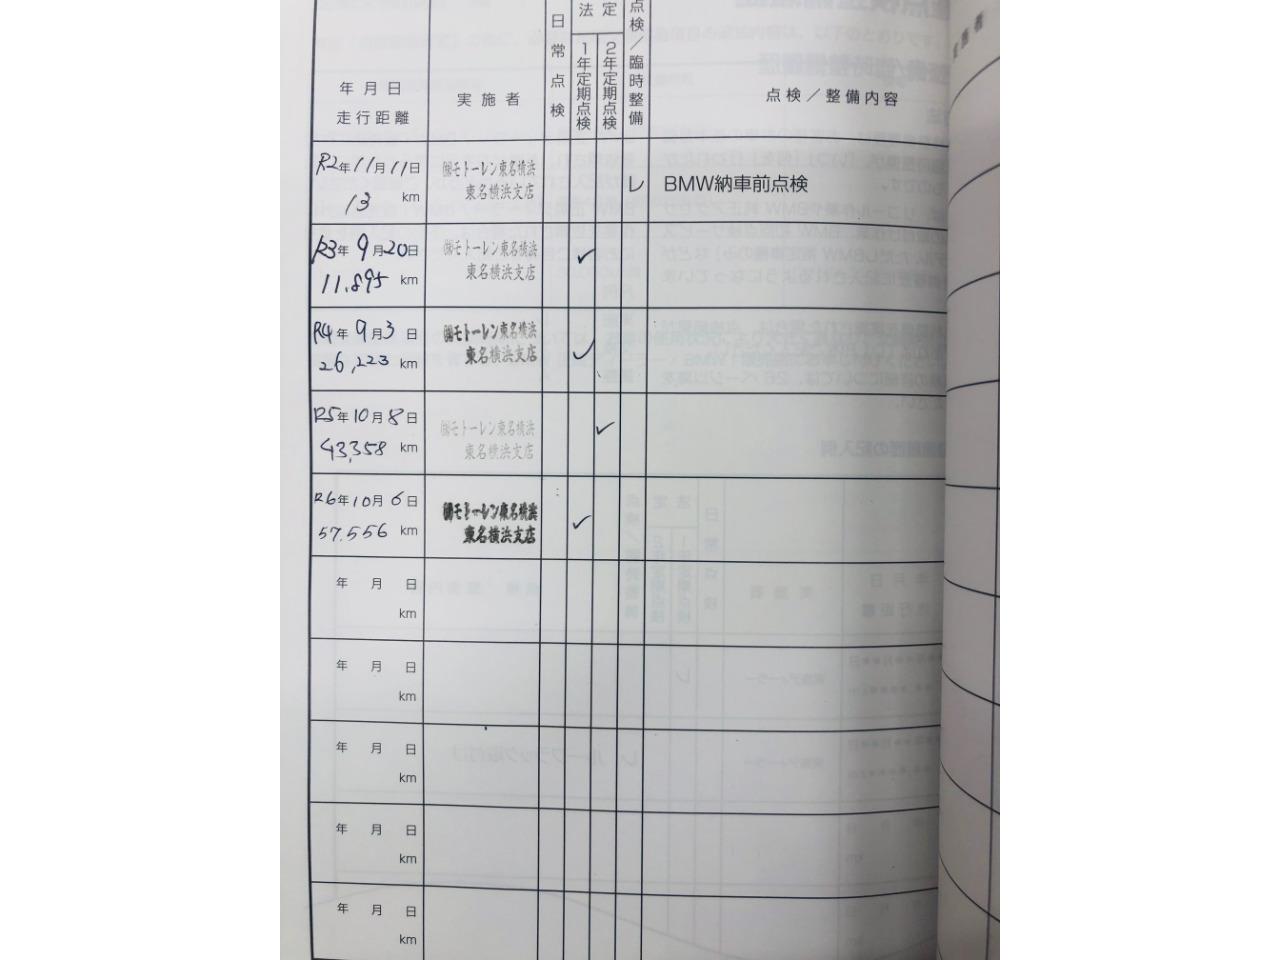 日常点検
法定
1年定期点検
2年定期点検
点検／臨時整備
年月日
走行距離
実施者
点検／整備内容
R2年11月11日
13 km
㈱モトーレン東名横浜
東名横浜支店
レ BMW納車前点検
R3年9月20日
11.895 km
㈱モトーレン東名横浜
東名横浜支店
✓
R4年9月3日
26,223 km
㈱モトーレン東名横浜
東名横浜支店
✓
R5年10月8日
43,358 km
㈱モトーレン東名横浜
東名横浜支店
✓
R6年10月6日
57.556 km
㈱モトーレン東名横浜
東名横浜支店
✓
年 月 日
km
年 月 日
km
年 月 日
km
年 月 日
km
年 月 日
km